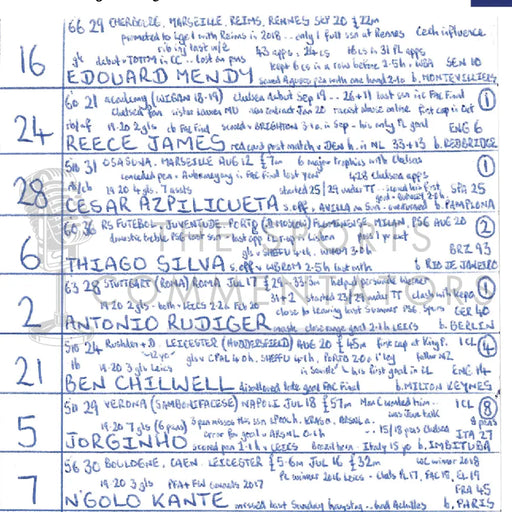 66 29 CHERBOURG, MARSEILLE, REIMS, RENNES SEP 20 £22m
promoted to Lge 1 with Reims in 2018 .. only 1 full ssn at Rennes Czech influence
rib inj last w/e 42 apps 24 cs 16 cs in 31 PL apps
16 gk debut v TOTTM in CC .. lost on pens kept 6 cs in a row before 2.5h v WBA SEN 10
EDOUARD MENDY b. MONTEVILLIERS
60 21 academy (WIGAN 18-19) Chelsea debut Sep 19 .. 26+11 last ssn inc FAC Final 1
Chelsea fan sister Lauren MU new contract Jan 20 racist abuse online first cap in Oct
24 rb/wb 19.20 2 gls cb FAC Final scored v BRIGHTON 3.1a in Sep - his only PL goal ENG 6
REECE JAMES red card post match v DEN h in NL 33+13 b. REDBRIDGE
510 31 OSASUNA, MARSEILLE AUG 12 £7m 6 major trophies with Chelsea 1
conceded pen v Aubameyang in FAC Final last year 428 Chelsea apps
28 rb/cb 19.20 4 gls 7 assts started 25/29 under TT SPA 25
CESAR AZPILICUETA b. PAMPLONA
60 36 RS FUTEBOL, JUVENTUDE, PORTO (D. MOSCOW) FLUMINENSE, MILAN, PSG AUG 20 2
domestic treble PSG last ssn - last app CL r-up v Lisbon
6 gls v SHEFU 4.1h, WHAM 3.0h BRZ 93
THIAGO SILVA s.off v WBROM 2.5h last mth b. RIO DE JANEIRO
63 28 STUTTGART (ROMA) ROMA JUL 17 £29-33.5m helped persuade Werner 1
19.20 2 gls - both v LEICS 2.2a Feb 20 31+2 started 23/29 under TT clash with Kepa
2 close to leaving last summer PSG Spurs GER 40
ANTONIO RUDIGER mask close range goal 2.1h LEICS b. BERLIN
510 24 Rushden + D. LEICESTER (HUDDERSFIELD) AUG 20 £45m first cap at King P. 1CL 4
21 lb 19.20 3 gls Leics gls v CPAL 4.0h, SHEFU 4.1h, PORTO 2.0a 1 leg follow NZ
in Seville his first goal in CL ENG 14
BEN CHILWELL disallowed late goal FAC Final b. MILTON KEYNES
511 29 VERONA (SAMBONIFACESE) NAPOLI JUL 18 £57m Man C wanted him .. 1CL 8
19.20 7 gls (6 pens) 3 pen misses this ssn LPOOL h, KRASN, ARSNL a.
5 error for goal v ARSNL 0.1h .. 15/18 pens Chelsea ITA 27
JORGINHO scored pen 2.1h v LEICS Brazil born Italy 15 yo b. IMBITUBA
56 30 BOULOGNE, CAEN, LEICESTER £5.6m JUL 16 £32m WC winner 2018
19.20 3 gls PFA + FW awards 2017 PL winner 2016 Leics - Chels PL 17, FAC 18, EL 19
7 FRA 45
N'GOLO KANTE missed last Sunday hamstng .. had Achilles b. PARIS
THE SPORTS
COMMENTATORS